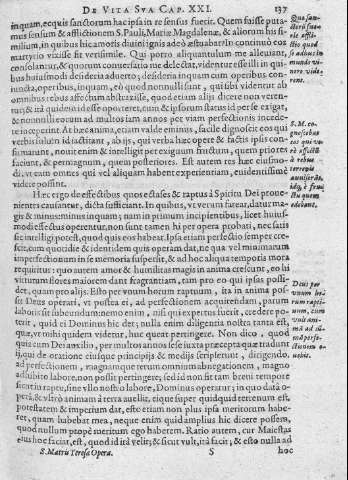 DE VITA SVA CAP. XXI. 137
inquam, ecquis sanctorum hac ipsa in re sensus fuerit. Quem fuisse puta-
mus sensum & afflictionem S. Pauli, Mariæ Magdalenæ, & aliorum his si-
milium, in quibus hic amoris divini ignis adeò æstuabat? In continuò eos
martyrio vixisse sit verisimile. Qui porro aliquantulum me alleuant
& consolantur, & quorum consortio me delectat, videntur esse illi in qui-
bus huiusmodi desideria aduerto; desideria inquam cum operibus con-
iuncta,
operibus, inquam, eò quod nonnulli sunt, qui sibi videntur ab
omnibus rebus affectum abstraxisse, quod etiam aliis dicere non veren-
tur; & ita quidem id esse oporteret, cum & ipsorum status id per se exigat,
& nonnulli eorum ad multos iam annos per viam perfectionis incede-
re inceperint. At hæc anima, etiam valde eminus, facile dignoscit eos qui
verbis solum id iactitant, ab ijs, qui verba hæc opere & factis ipsis con-
firmarunt, nouit enim & intelligit per exiguum fructum, quem priores
faciunt, & permagnum, quem posteriores. Est autem res hæc eiusmo-
di, vt eam omnes qui vel aliquam habent experientiam, euidentissimè
videre possint.
Hæc ergo de effectibus quos ectases & raptus à Spiritu Dei proue-
nientes causantur, dicta sufficiant. In quibus, vt verum fatear, datur ma-
gis & minus: minus inquam; nam in primum incipientibus, licet huius-
modi effectus operentur, non sunt tamen hi per opera probati, nec sat
sic intelligi potest, quod quis eos habeat. Ipsa etiam perfectio semper cre-
scit, cum quotidie & identidem quis operam dat, ne qua vel minimarum
imperfectionum in se memoria supersit, & ad hoc aliqua temporis mora
requiritur: quo autem amor & humilitas magis in anima crescunt, eo la
virtutum flores maiorem dant fragrantiam, tam pro eo qui ipsas possi-
det, quam pro aliis. Esto per vnum horum raptuum, ita in anima pos-
sit Deus operari, vt postea ei, ad perfectionem acquirendam, parum
laboris sit subeundum: nemo enim, nisi qui expertus fuerit, credere pot-
erit, quid ei Dominus hic det; nulla enim diligentia nostra tanta est,
quæ, vt mihi quidem videtur, huc queat pertingere. Non dico, quod
quis cum Dei auxilio, per multos annos sese iuxta præcepta quæ tradunt
ij, qui de oratione eiusque principijs & medijs scripserunt, dirigendo,
ad perfectionem, magnamque rerum omnium abnegationem, magno
adhibito labore, non possit pertingere; sed id non fit tam breui tempore
sicut in raptu, sine vllo nostro labore, Dominus operatur; in quo data o-
perà, & vltrò animam à terra auellit, eique super quidquid terrenum est,
potestatem & imperium dat, esto etiam non plus ipsa meritorum habe-
ret, quam habebat mea, neque enim quid amplius hic dicere possem,
quod nullum prope meritum ego haberem. Ratio autem, cur Maiestas
eius hoc faciat, est, quod id ita velit; & sicut vult, ita facit; & esto nulla ad
S. Matris Teresæ Opera. S hoc